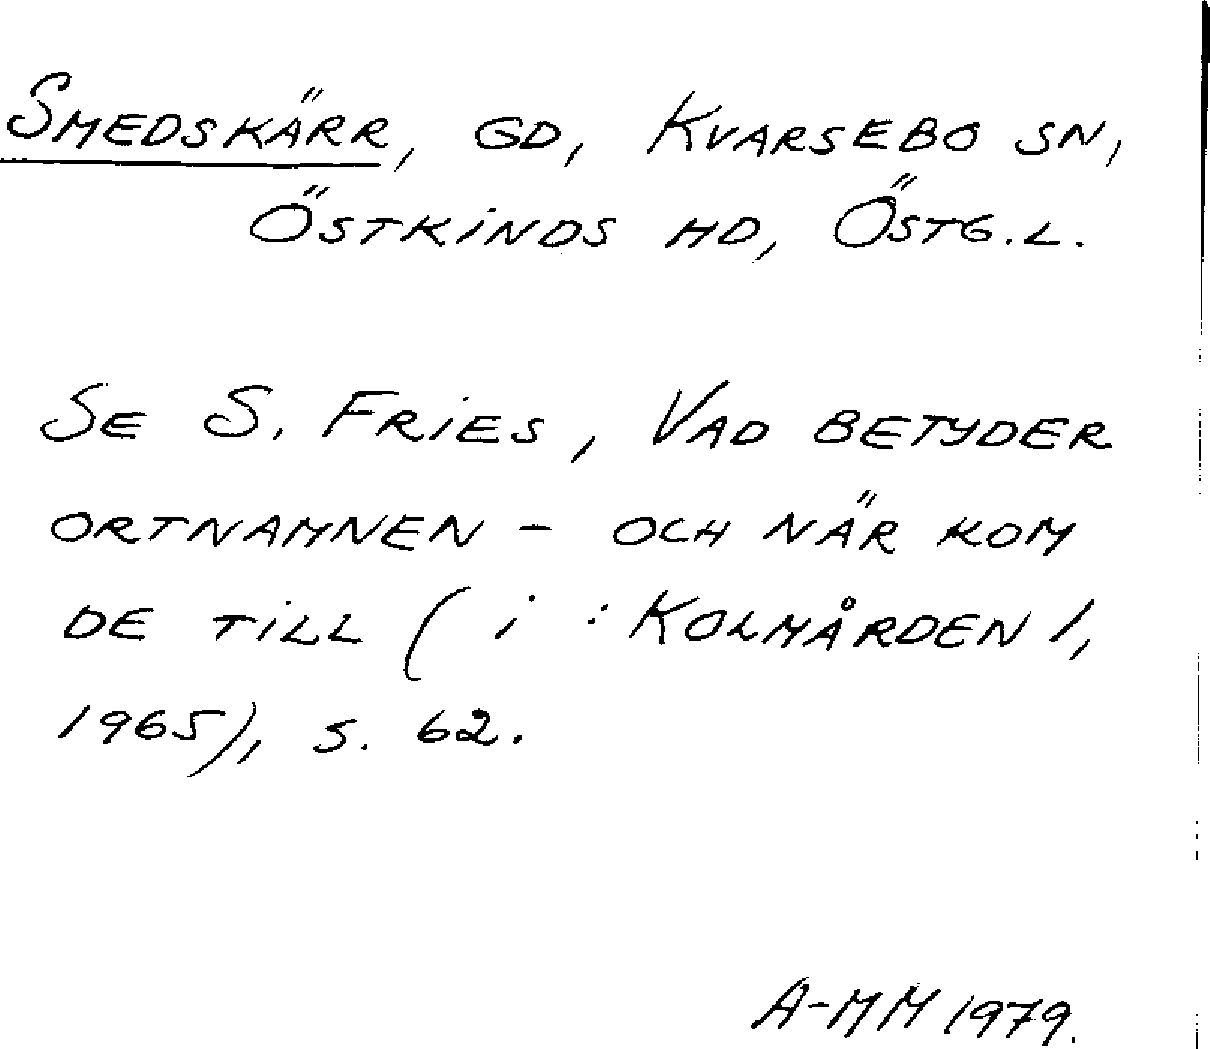 SMEDSKÄRR, GD, KVARSEBO SN,
ÖSTKINDS HD, ÖSTG.L.
SE S. FRIES, VAD BETYDER
ORTNAMNEN - OCH NÄR KOM
DE TILL (i: KOLMÅRDEN 1,
1965), S. 62.
A-MM 1979.